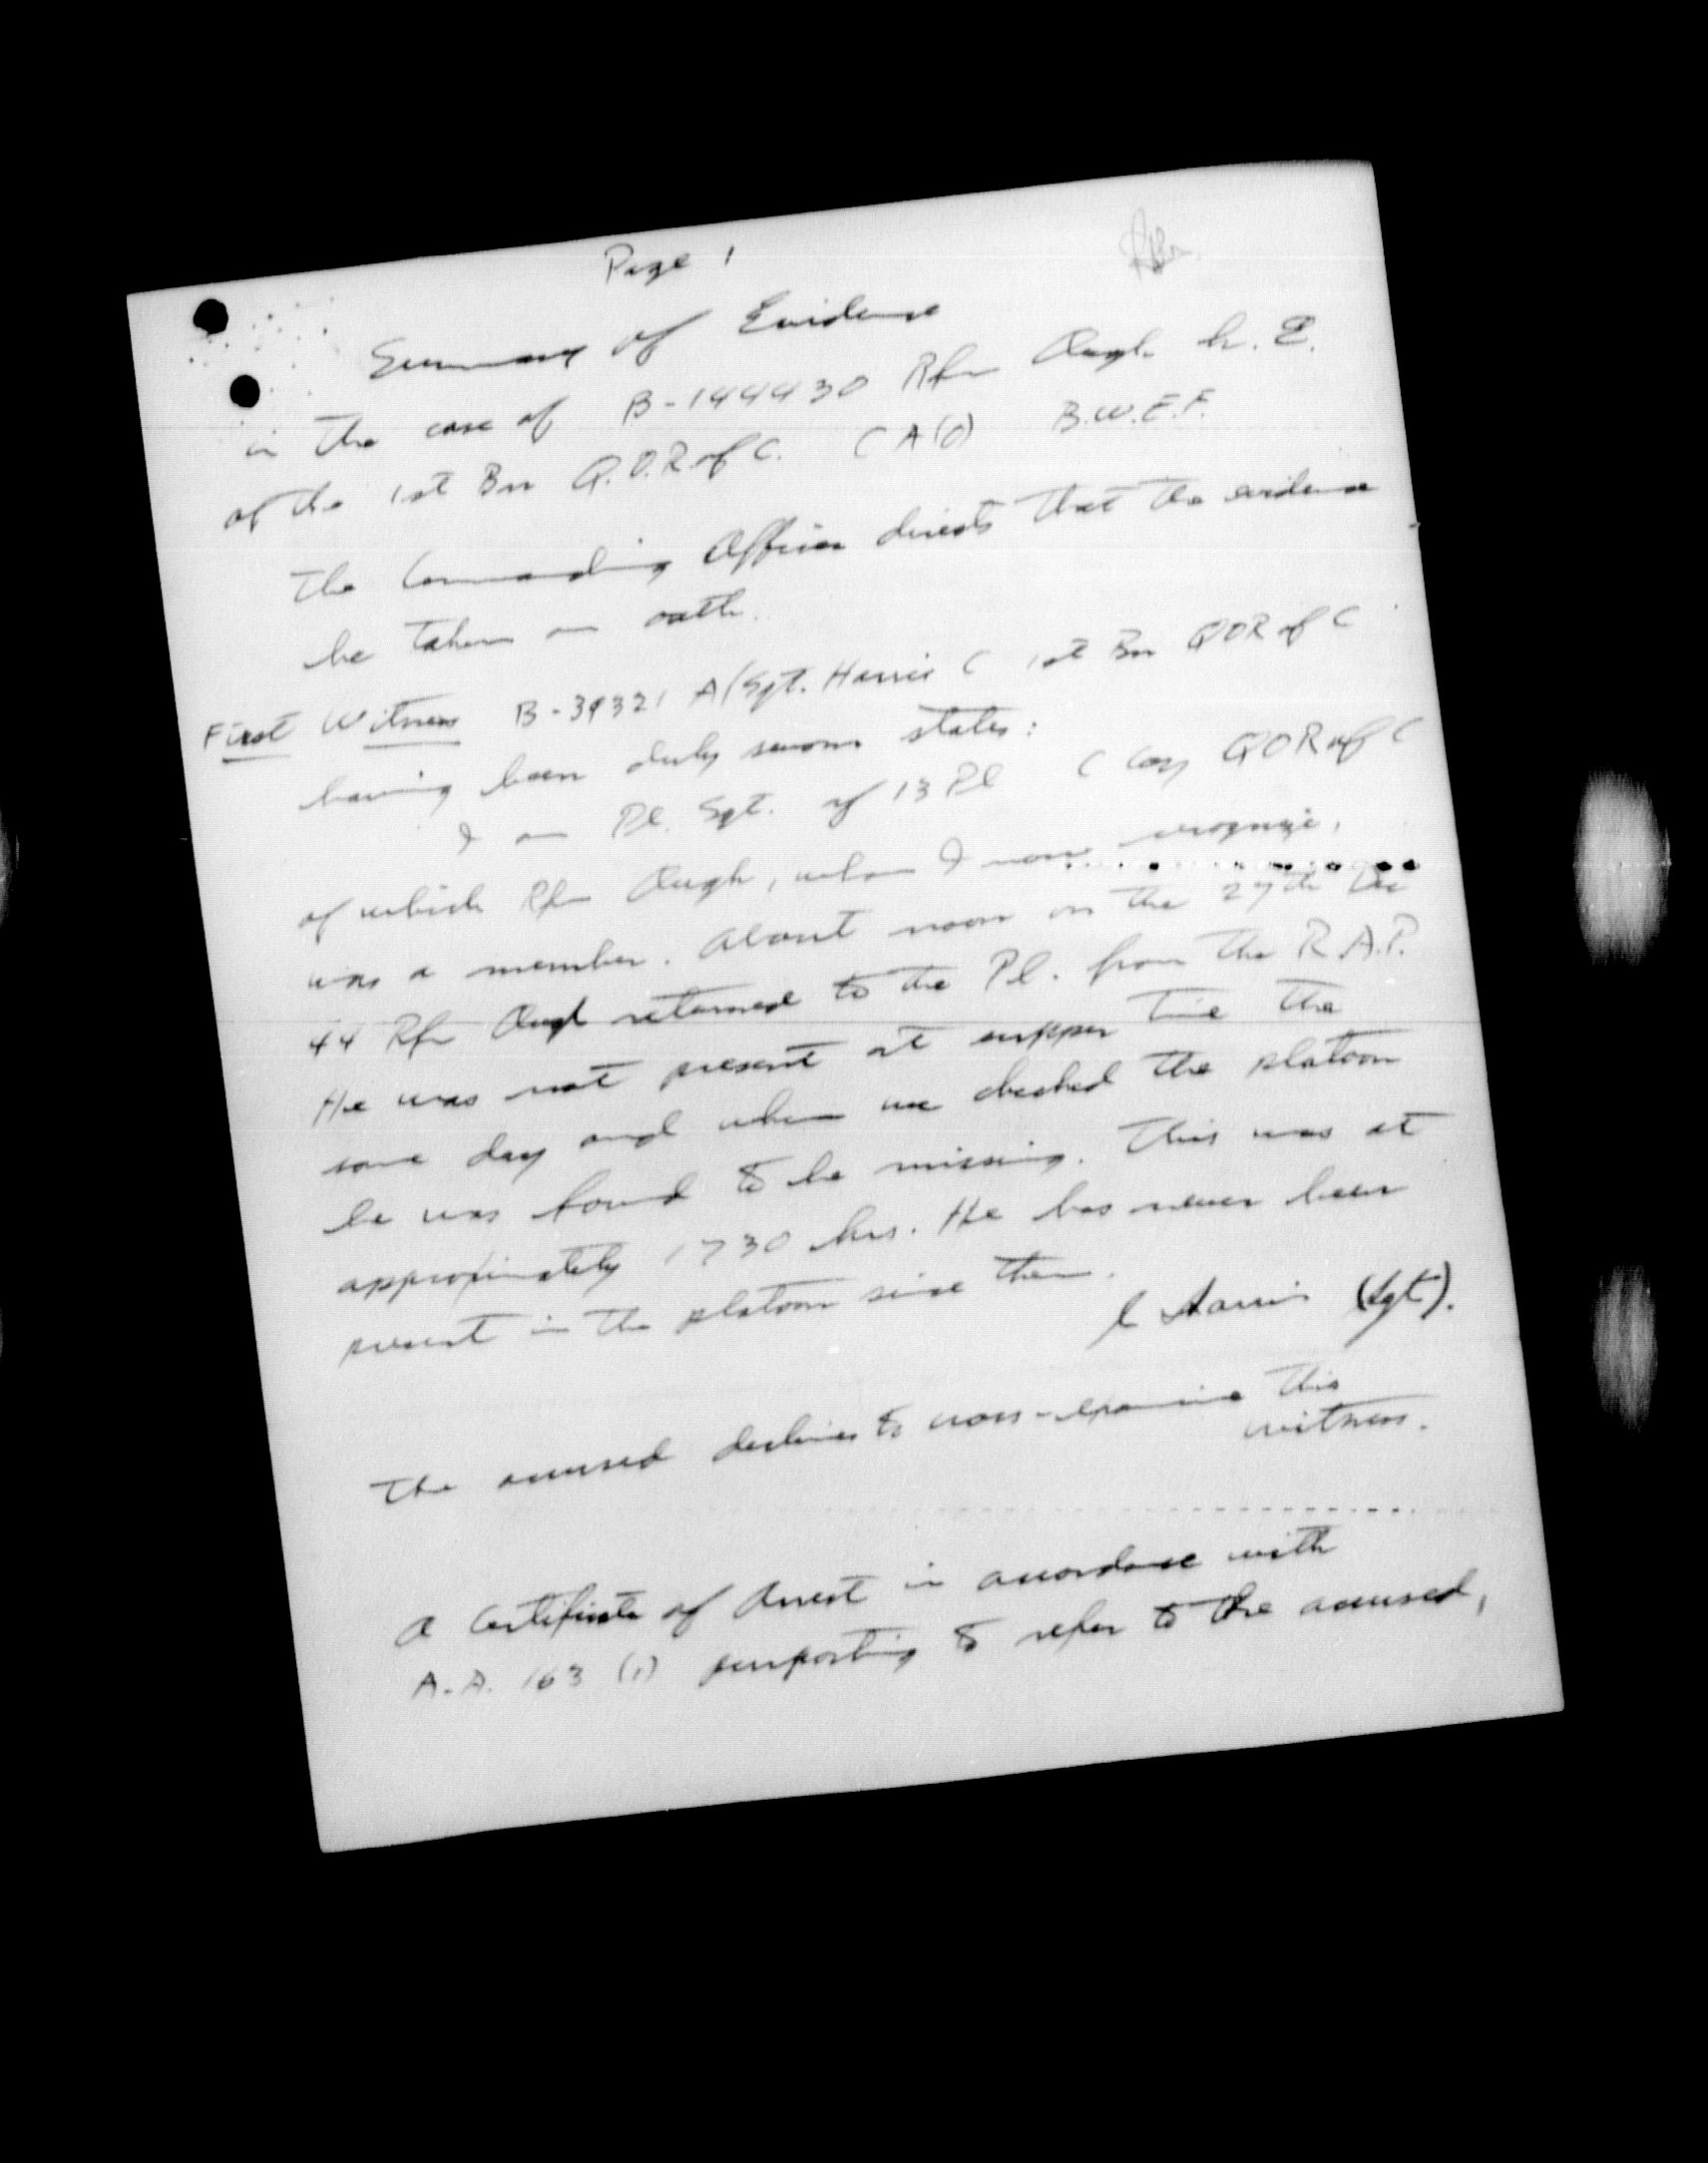 Page 1
Summary of Evidence
in the case of B-144430 Rfn Ough h. E.
of the 1st Bn Q.O.R of C. CA(O) B.W.E.F.
The Commanding Officer directs that the evidence
be taken on oath.
First Witness B-39321 A/Sgt. Harris C 1st Bn QOR of C
having been duly sworn states:
I am Pl. Sgt. of 13 Pl C Coy QOR of C
of which Rfn Ough, whom I now recognize,
was a member. About noon on the 27th Dec
44 Rfn Ough returned to the Pl. from the R.A.P.
He was not present at supper time the
same day and when we checked the platoon
he was found to be missing. This was at
approximately 1730 hrs. He has never been
present in the platoon since then.
C Harris (Sgt).
The accused declines to cross-examine this
witness.
A Certificate of Arrest in accordance with
A.A. 163 (1) purporting to refer to the accused,